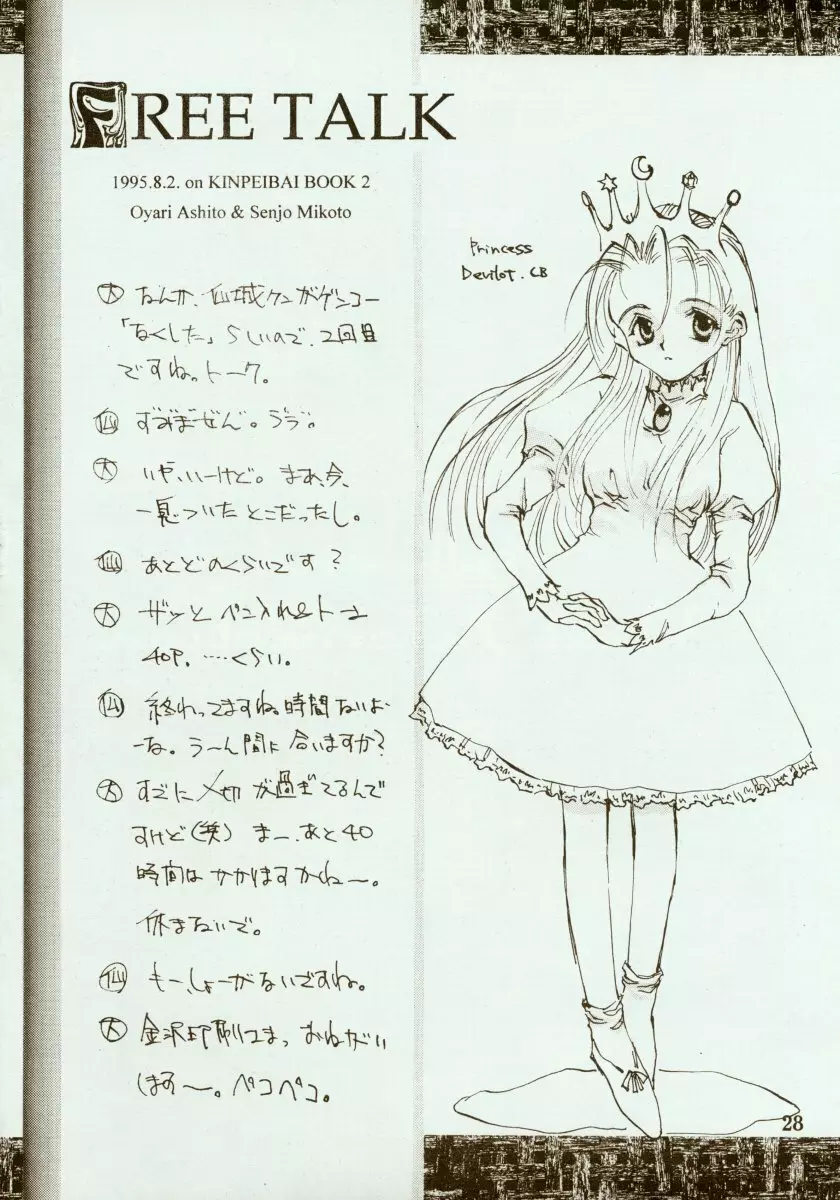 FREE TALK
1995.8.2. on KINPEIBAI BOOK 2
Oyari Ashito & Senjo Mikoto
Princess
Devilot. CB
大 なんか、仙城クンがゲンコー
「なくした」らしいので、2回目
ですね。トーク。
仙 ずみまぜん。ううう。
大 いや、いーけど。まあ、今、
一息ついたとこだったし。
仙 あとどのくらいです?
大 ザッと ペン入れ&トーン
40P. ‥‥くらい。
仙 終わってますね。時間ないよ
ーな。うーん間に合いますか?
大 すでに〆切が過ぎてるんで
すけど(笑) まー、あと40
時間はかかりますかねー。
休まないで。
仙 もー、しょーがないですね。
大 金沢印刷さま、おねがい
しますー。ペコペコ。
28